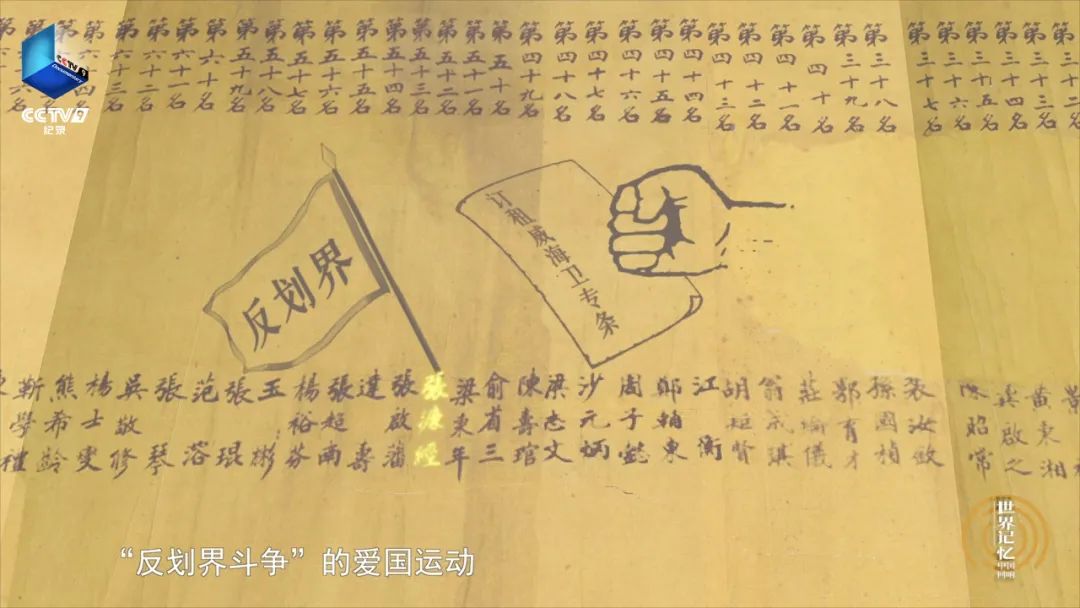 CCTV 9
Documentary
CCTV9
纪录
第三十三名
第三十四名
第三十五名
第三十六名
第三十七名
第三十八名
第三十九名
第四十名
第四十一名
第四十二名
第四十三名
第四十四名
第四十五名
第四十六名
第四十七名
第四十八名
第四十九名
第五十名
第五十一名
第五十二名
第五十三名
第五十四名
第五十五名
第五十六名
第五十七名
第五十八名
第五十九名
第六十名
第六十一名
第六十二名
第六十三名
反划界
订租威海卫专条
黄東湘
啟之
陳昭常
張汝
孫國楨
育才
莊儀
翁成琪
胡矩賢
江衡
鄭輔東
周子懿
沙元炳
梁志文
陳壽琯
俞省三
梁東年
張濂經
張啟藩
達壽
張超南
楊裕芬
玉彬
張琨
范溶
張琴
吳敬修
楊士燮
熊希齡
靳學禮
世界记忆
中国回响
“反划界斗争”的爱国运动